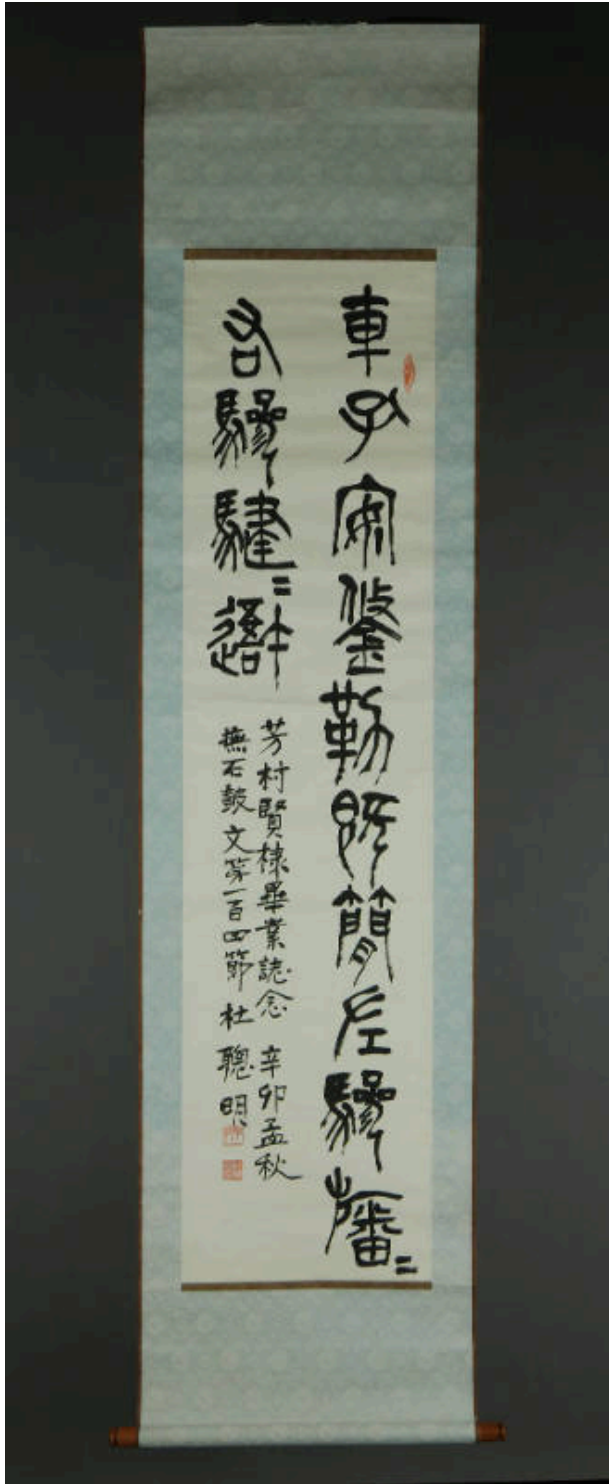 車孔安鋚勒既簡左驂旛〻
右驂騝〻
芳村賢棣畢業誌念 辛卯孟秋
橅石鼓文第一百四節 杜聰明